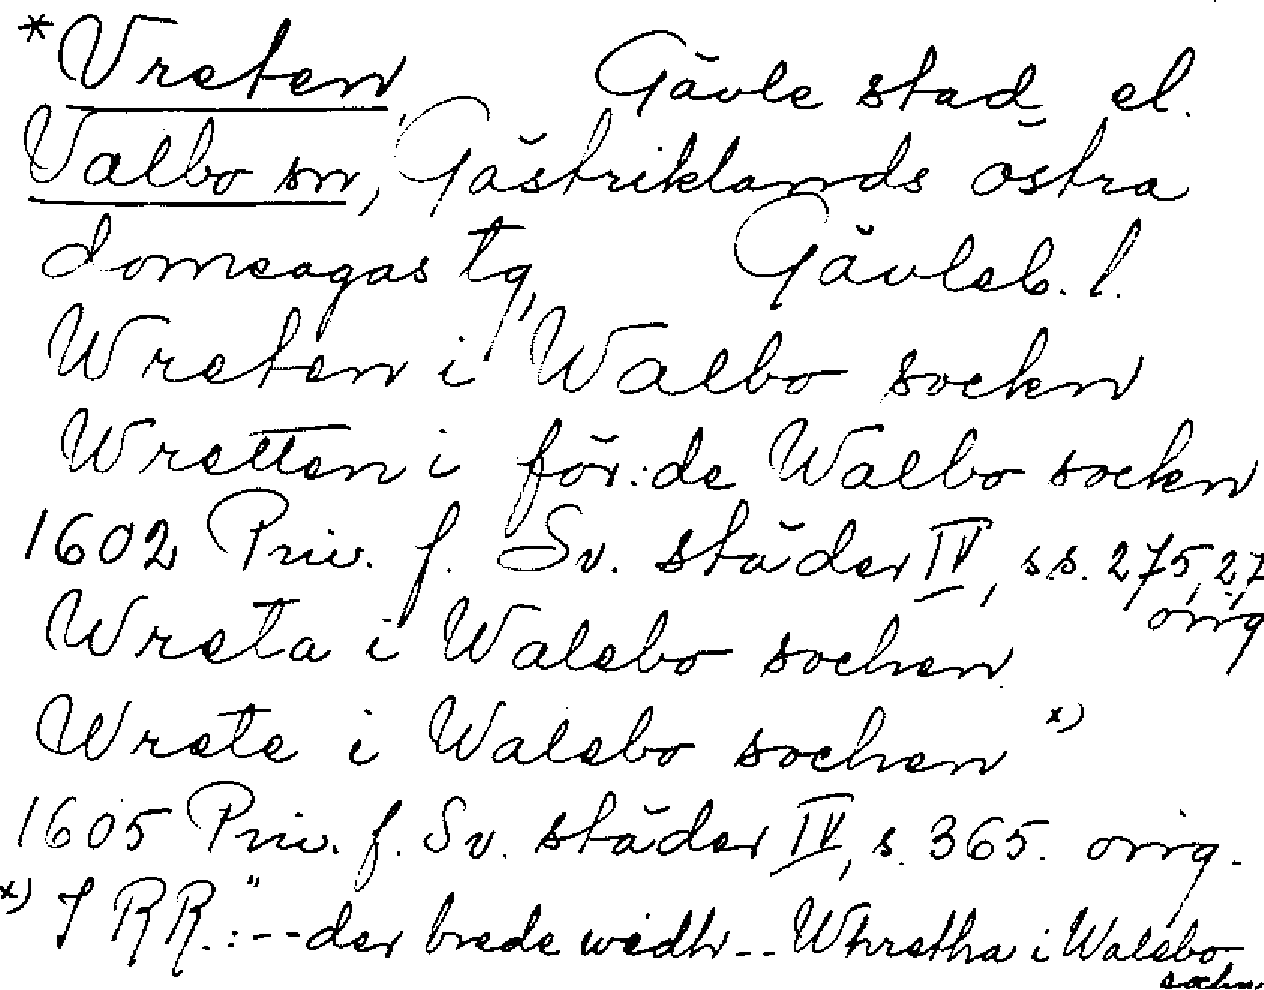 *Vreten, Gävle stad el.
Valbo sn, Gästriklands östra
domsagas tg, Gävleb. l.
Wreten i Walbo sockn
Wretten iför:de Walbo sockn
1602 Priv. f. Sv. städer IV, ss. 275, 27
orig
Wreta i Walebo sochen
Wrete i Walebo sochen x)
1605 Priv. f. Sv. städer IV, s. 365. orig.
x) I RR.: "--der brede wedh -- Whretha i Walebo
sochn